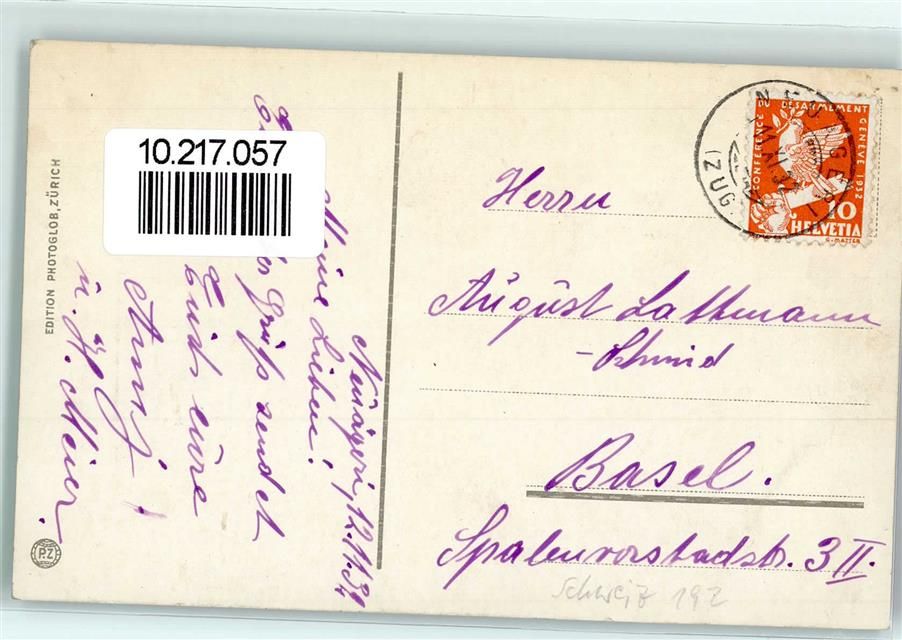 10.217.057
EDITION PHOTOGLOB, ZÜRICH
PZ
Neuägeri, 12.11.32
Meine Lieben!
Gruss sendet
Euch eure
Anny
u. H. Meier.
NEUÄGERI
(ZUG)
CONFÉRENCE DU DÉSARMEMENT GENÈVE 1932
10
HELVETIA
G. MATTER
Herrn
August Lathmann
- Schmid
Basel.
Spalenvorstadtstr. 3 II.
Schweiz 192